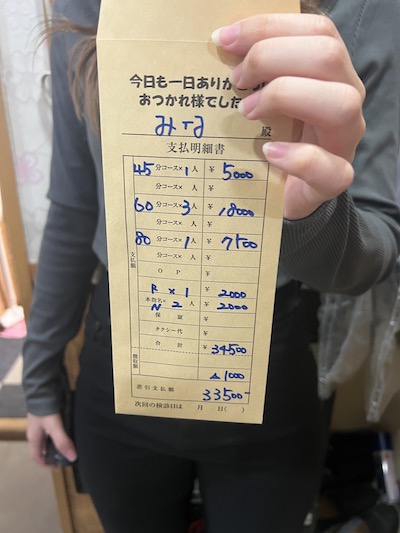 今日も一日ありが
おつかれ様でした
みな 殿
支払明細書
45分コース×1人 ¥5000
分コース× 人 ¥
60分コース×3人 ¥18000
分コース× 人 ¥
80分コース×1人 ¥7500
分コース× 人 ¥
支払額
O P ¥
R×1 2000
本指名× N 2人 ¥2000
保証 ¥
タクシー代 ¥
合計 ¥34500
徴収額
△1000
差引支払額 33500-
次回の検診日は 月 日( )